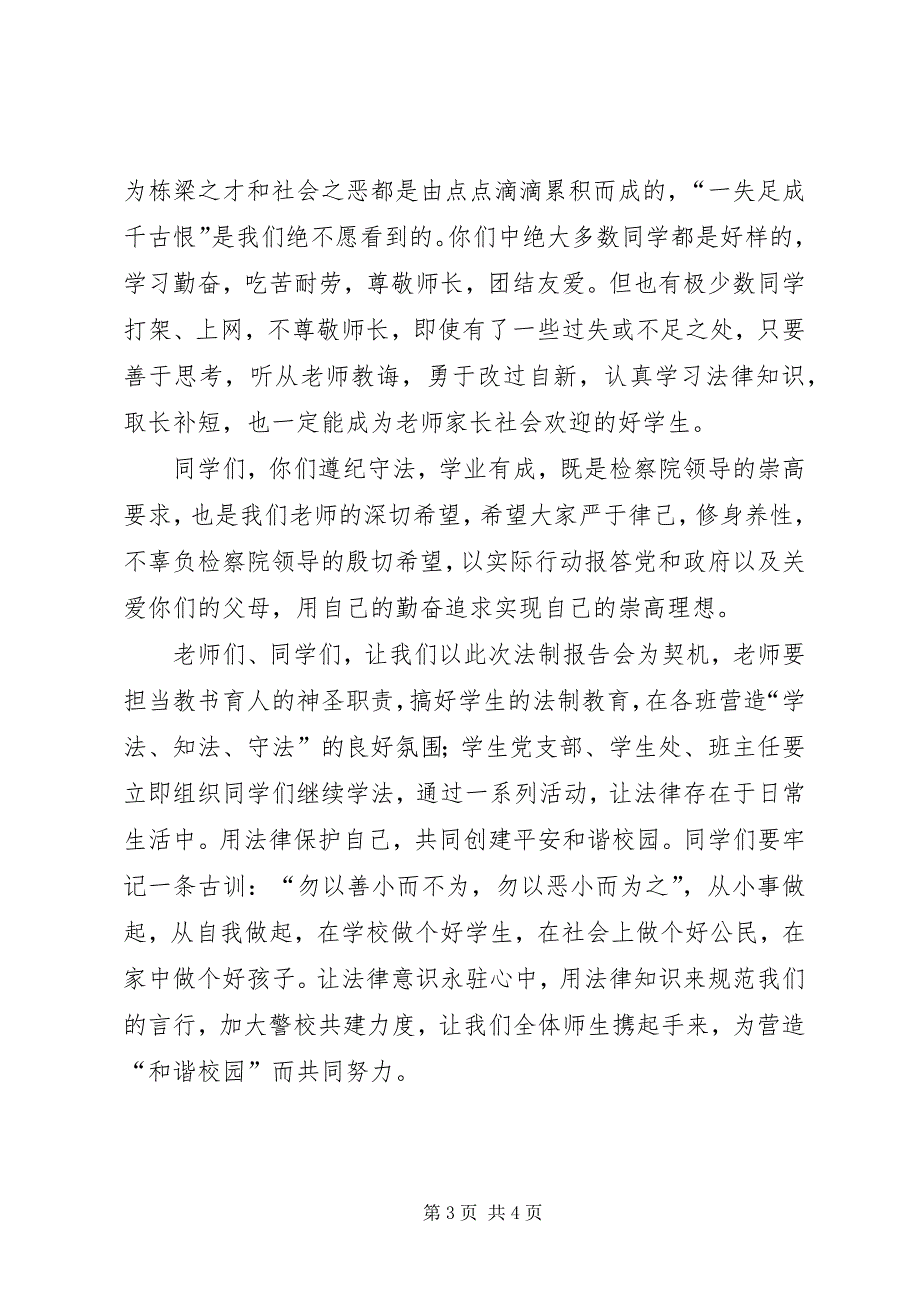 为栋梁之才和社会之恶都是由点点滴滴累积而成的，“一失足成
千古恨”是我们绝不愿看到的。你们中绝大多数同学都是好样的，
学习勤奋，吃苦耐劳，尊敬师长，团结友爱。但也有极少数同学
打架、上网，不尊敬师长，即使有了一些过失或不足之处，只要
善于思考，听从老师教诲，勇于改过自新，认真学习法律知识，
取长补短，也一定能成为老师家长社会欢迎的好学生。
同学们，你们遵纪守法，学业有成，既是检察院领导的崇高
要求，也是我们老师的深切希望，希望大家严于律己，修身养性，
不辜负检察院领导的殷切希望，以实际行动报答党和政府以及关
爱你们的父母，用自己的勤奋追求实现自己的崇高理想。
老师们、同学们，让我们以此次法制报告会为契机，老师要
担当教书育人的神圣职责，搞好学生的法制教育，在各班营造“学
法、知法、守法”的良好氛围；学生党支部、学生处、班主任要
立即组织同学们继续学法，通过一系列活动，让法律存在于日常
生活中。用法律保护自己，共同创建平安和谐校园。同学们要牢
记一条古训：“勿以善小而不为，勿以恶小而为之”，从小事做
起，从自我做起，在学校做个好学生，在社会上做个好公民，在
家中做个好孩子。让法律意识永驻心中，用法律知识来规范我们
的言行，加大警校共建力度，让我们全体师生携起手来，为营造
“和谐校园”而共同努力。
第 3 页 共 4 页